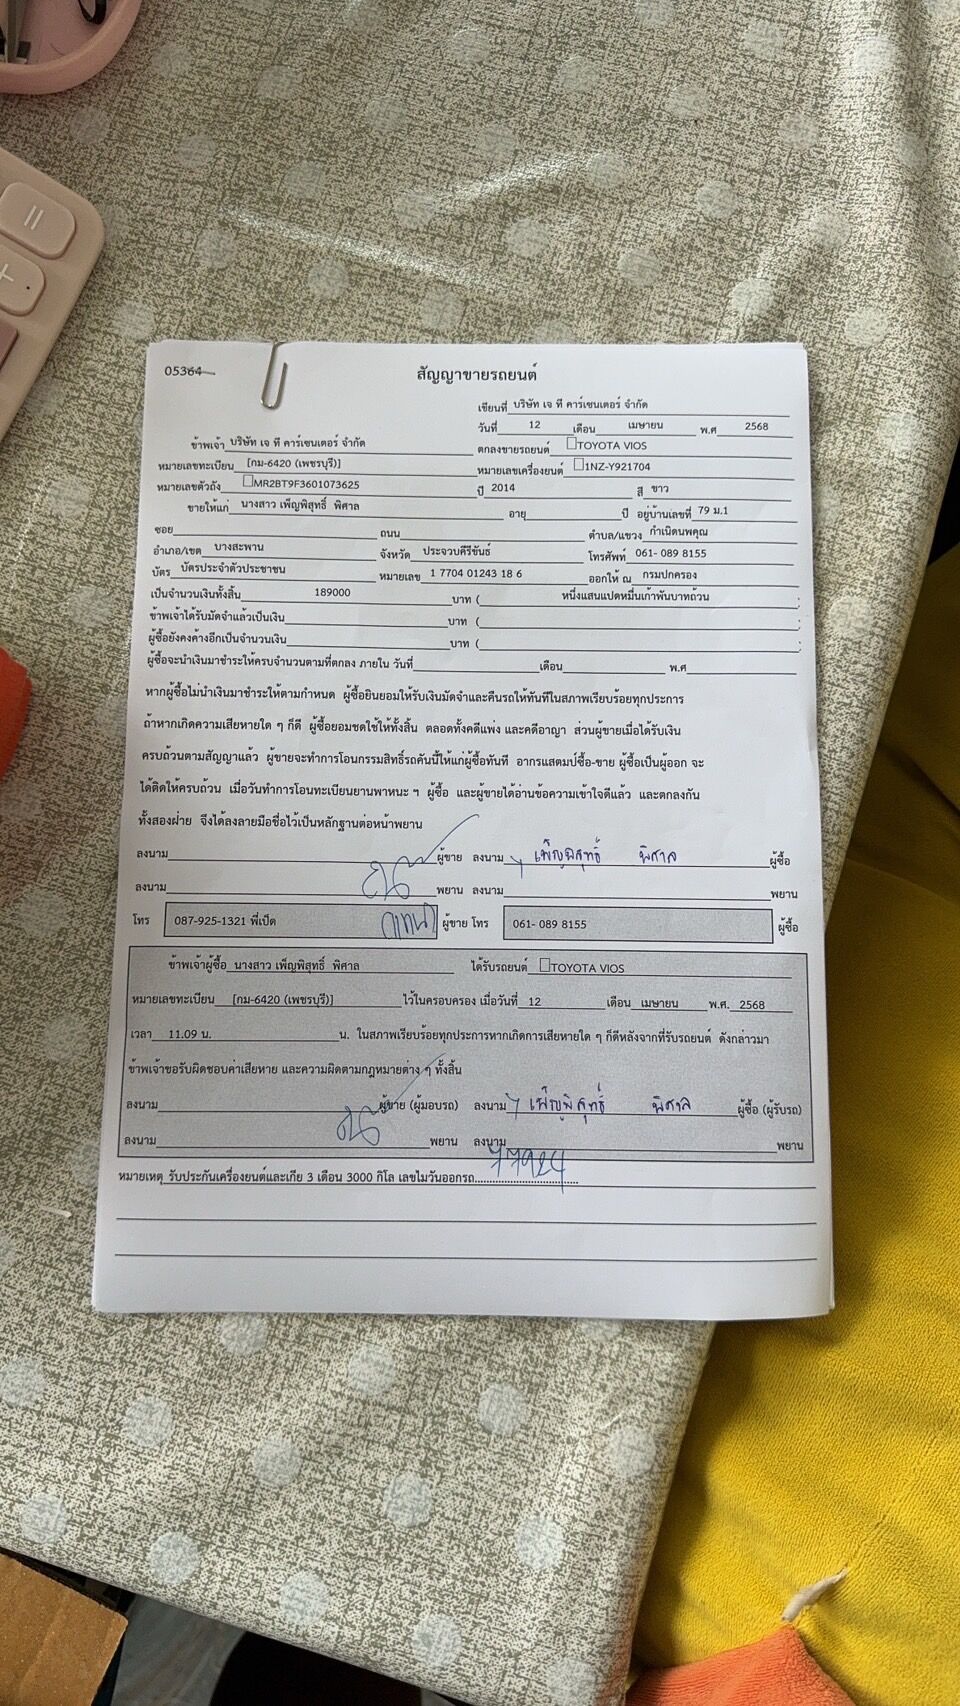 05364
สัญญาขายรถยนต์
เขียนที่ บริษัท เจ ที คาร์เซนเตอร์ จำกัด
วันที่ 12 เดือน เมษายน พ.ศ 2568
ข้าพเจ้า บริษัท เจ ที คาร์เซนเตอร์ จำกัด ตกลงขายรถยนต์ TOYOTA VIOS
หมายเลขทะเบียน [กม-6420 (เพชรบุรี)] หมายเลขเครื่องยนต์ 1NZ-Y921704
หมายเลขตัวถัง MR2BT9F3601073625 ปี 2014 สี ขาว
ขายให้แก่ นางสาว เพ็ญพิสุทธิ์ พิศาล อายุ ปี อยู่บ้านเลขที่ 79 ม.1
ซอย ถนน ตำบล/แขวง กำเนิดนพคุณ
อำเภอ/เขต บางสะพาน จังหวัด ประจวบคีรีขันธ์ โทรศัพท์ 061- 089 8155
บัตร บัตรประจำตัวประชาชน หมายเลข 1 7704 01243 18 6 ออกให้ ณ กรมปกครอง
เป็นจำนวนเงินทั้งสิ้น 189000 บาท ( หนึ่งแสนแปดหมื่นเก้าพันบาทถ้วน
ข้าพเจ้าได้รับมัดจำแล้วเป็นเงิน บาท (
ผู้ซื้อยังคงค้างอีกเป็นจำนวนเงิน บาท (
ผู้ซื้อจะนำเงินมาชำระให้ครบจำนวนตามที่ตกลง ภายใน วันที่ เดือน พ.ศ
หากผู้ซื้อไม่นำเงินมาชำระให้ตามกำหนด ผู้ซื้อยินยอมให้รับเงินมัดจำและคืนรถให้ทันทีในสภาพเรียบร้อยทุกประการ
ถ้าหากเกิดความเสียหายใด ๆ ก็ดี ผู้ซื้อยอมชดใช้ให้ทั้งสิ้น ตลอดทั้งคดีแพ่ง และคดีอาญา ส่วนผู้ขายเมื่อได้รับเงิน
ครบถ้วนตามสัญญาแล้ว ผู้ขายจะทำการโอนกรรมสิทธิ์รถคันนี้ให้แก่ผู้ซื้อทันที อากรแสตมป์ซื้อ-ขาย ผู้ซื้อเป็นผู้ออก จะ
ได้ติดให้ครบถ้วน เมื่อวันทำการโอนทะเบียนยานพาหนะ ฯ ผู้ซื้อ และผู้ขายได้อ่านข้อความเข้าใจดีแล้ว และตกลงกัน
ทั้งสองฝ่าย จึงได้ลงลายมือชื่อไว้เป็นหลักฐานต่อหน้าพยาน
ลงนาม ผู้ขาย ลงนาม เพ็ญพิสุทธิ์ พิศาล ผู้ซื้อ
ลงนาม พยาน ลงนาม พยาน
โทร 087-925-1321 พี่เป็ด ผู้ขาย โทร 061- 089 8155 ผู้ซื้อ
ข้าพเจ้าผู้ซื้อ นางสาว เพ็ญพิสุทธิ์ พิศาล ได้รับรถยนต์ TOYOTA VIOS
หมายเลขทะเบียน [กม-6420 (เพชรบุรี)] ไว้ในครอบครอง เมื่อวันที่ 12 เดือน เมษายน พ.ศ. 2568
เวลา 11.09 น. น. ในสภาพเรียบร้อยทุกประการหากเกิดการเสียหายใด ๆ ก็ดีหลังจากที่รับรถยนต์ ดังกล่าวมา
ข้าพเจ้าขอรับผิดชอบค่าเสียหาย และความผิดตามกฎหมายต่าง ๆ ทั้งสิ้น
ลงนาม ผู้ขาย (ผู้มอบรถ) ลงนาม เพ็ญพิสุทธิ์ พิศาล ผู้ซื้อ (ผู้รับรถ)
ลงนาม พยาน ลงนาม พยาน
หมายเหตุ รับประกันเครื่องยนต์และเกีย 3 เดือน 3000 กิโล เลขไมวันออกรถ